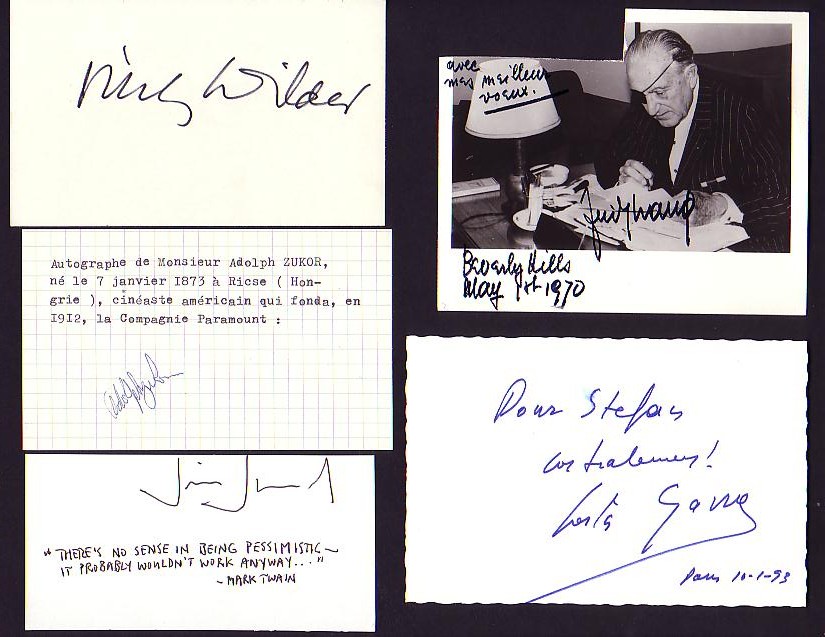 Billy Wilder
avec
mes meilleurs
voeux.
Fritz Lang
Beverly Hills
May 1st 1970
Autographe de Monsieur Adolph ZUKOR,
né le 7 janvier I873 à Ricse ( Hon-
grie ), cinéaste américain qui fonda, en
I9I2, la Compagnie Paramount :
Adolph Zukor
Pour Stefan
cordialement!
Costa Gavras
Paris 10-1-93
"THERE'S NO SENSE IN BEING PESSIMISTIC~
IT PROBABLY WOULDN'T WORK ANYWAY..."
~MARK TWAIN